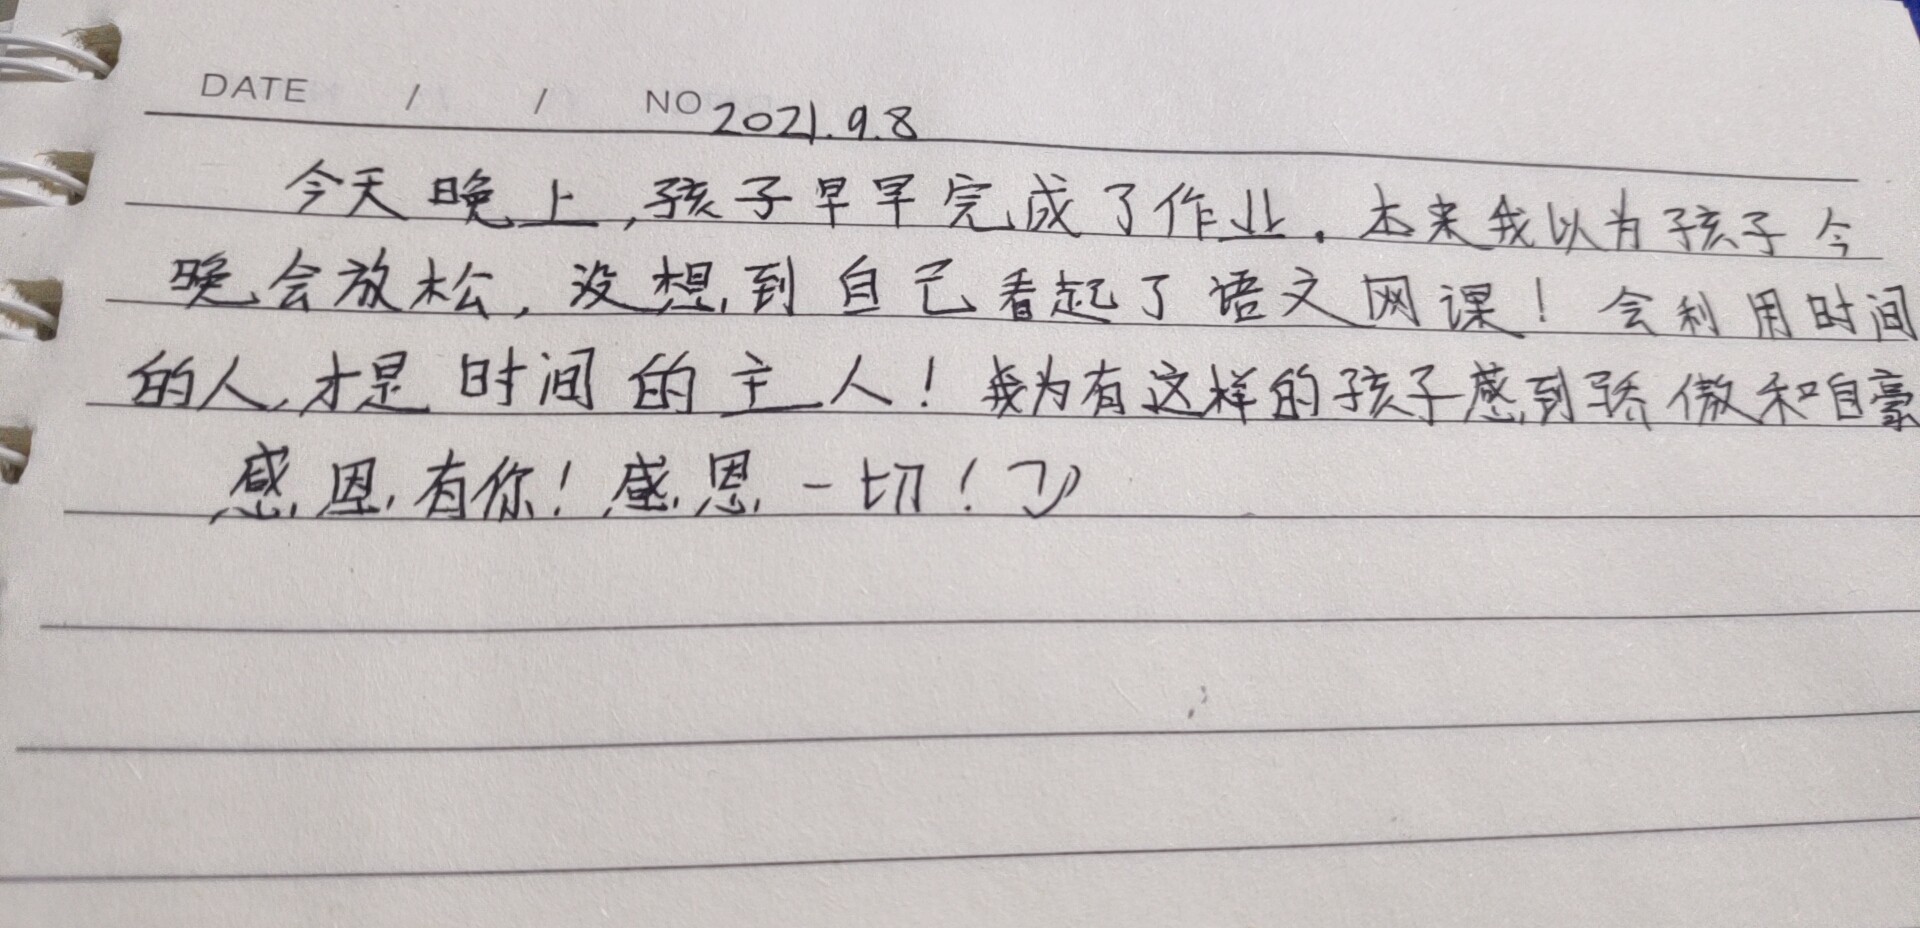 DATE / / NO 2021.9.8
今天晚上,孩子早早完成了作业.本来我以为孩子今
晚会放松,没想到自己看起了语文网课!会利用时间
的人,才是时间的主人!我为有这样的孩子感到骄傲和自豪
感恩有你!感恩一切!